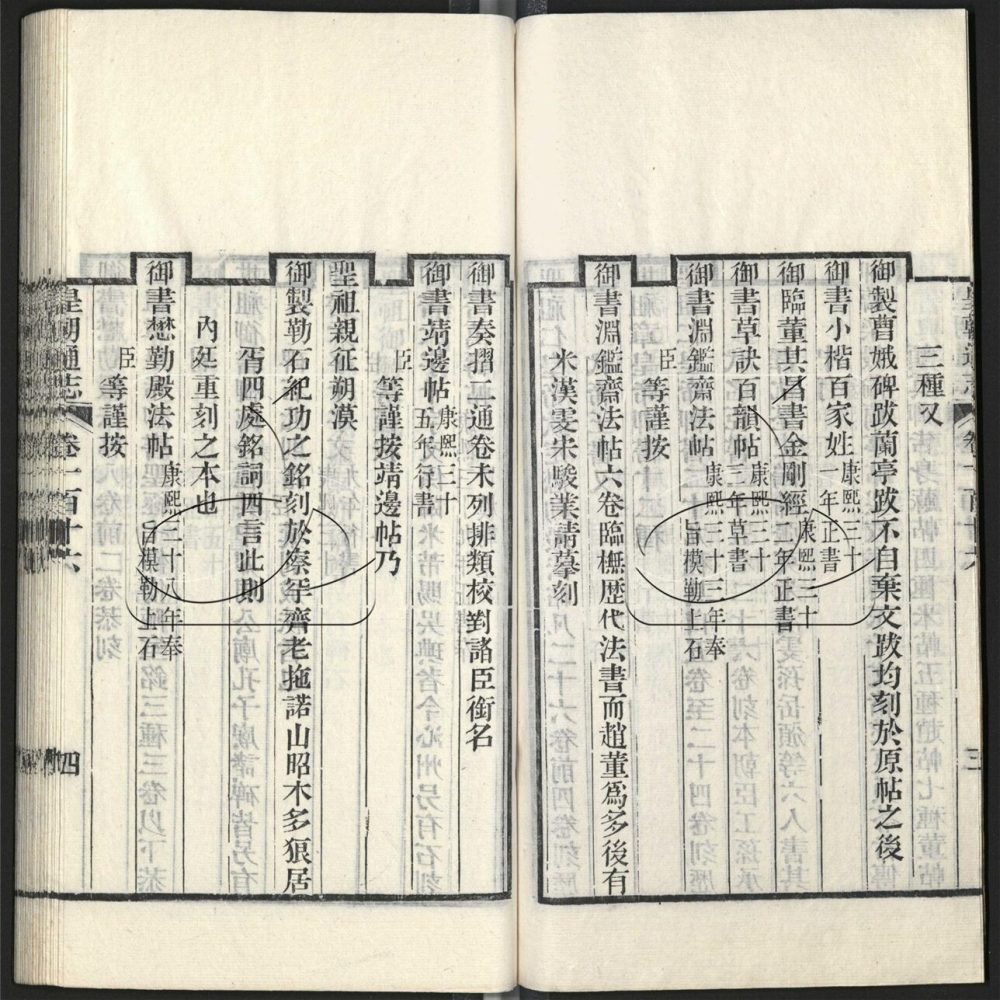 三種又
御製曹娥碑跋蘭亭跋不自棄文跋均刻於原帖之後
御書小楷百家姓康熙三十一年正書
御臨董其昌書金剛經康熙三十二年正書
御書草訣百韻帖康熙三十三年草書
御書淵鑑齋法帖康熙三十三年奉旨模勒上石
臣等謹按
御書淵鑑齋法帖六卷臨橅歷代法書而趙董爲多後有
米漢雯宋駿業請摹刻
御書奏摺二通卷末列排類校對諸臣銜名
御書靖邊帖康熙三十五年行書
臣等謹按靖邊帖乃
聖祖親征朔漠
御製勒石紀功之銘刻於察罕齊老拖諾山昭木多狼居
胥四處銘詞四言此則
內廷重刻之本也
御書懋勤殿法帖康熙三十八年奉旨模勒上石
臣等謹按
皇朝通志
卷一百十六
三
四